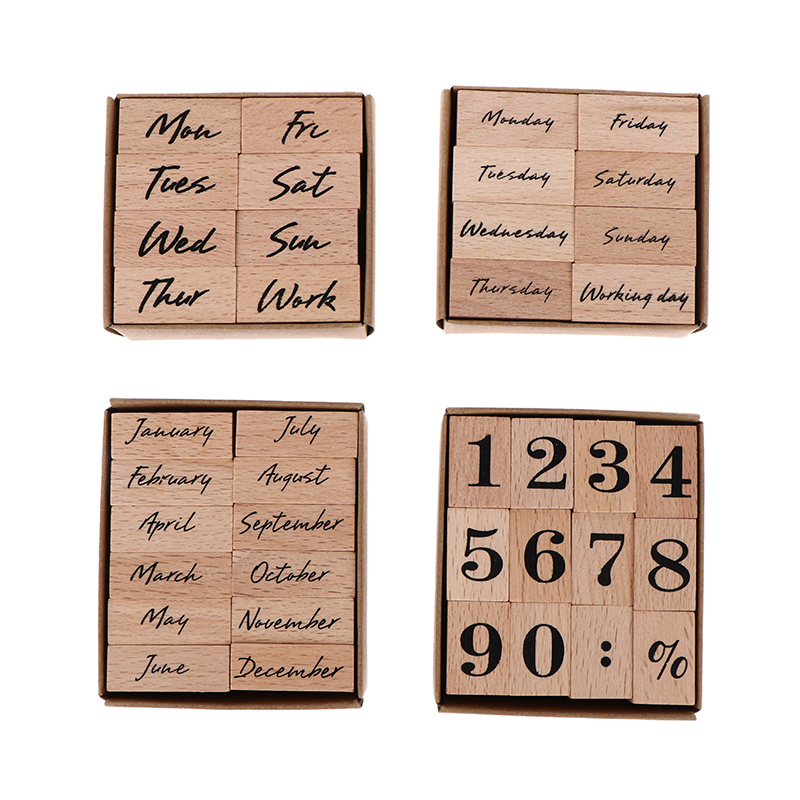 Mon Fri
Tues Sat
Wed Sun
Thur Work
Monday Friday
Tuesday Saturday
Wednesday Sunday
Thursday Working day
January July
February August
April September
March October
May November
June December
1 2 3 4
5 6 7 8
9 0 : %